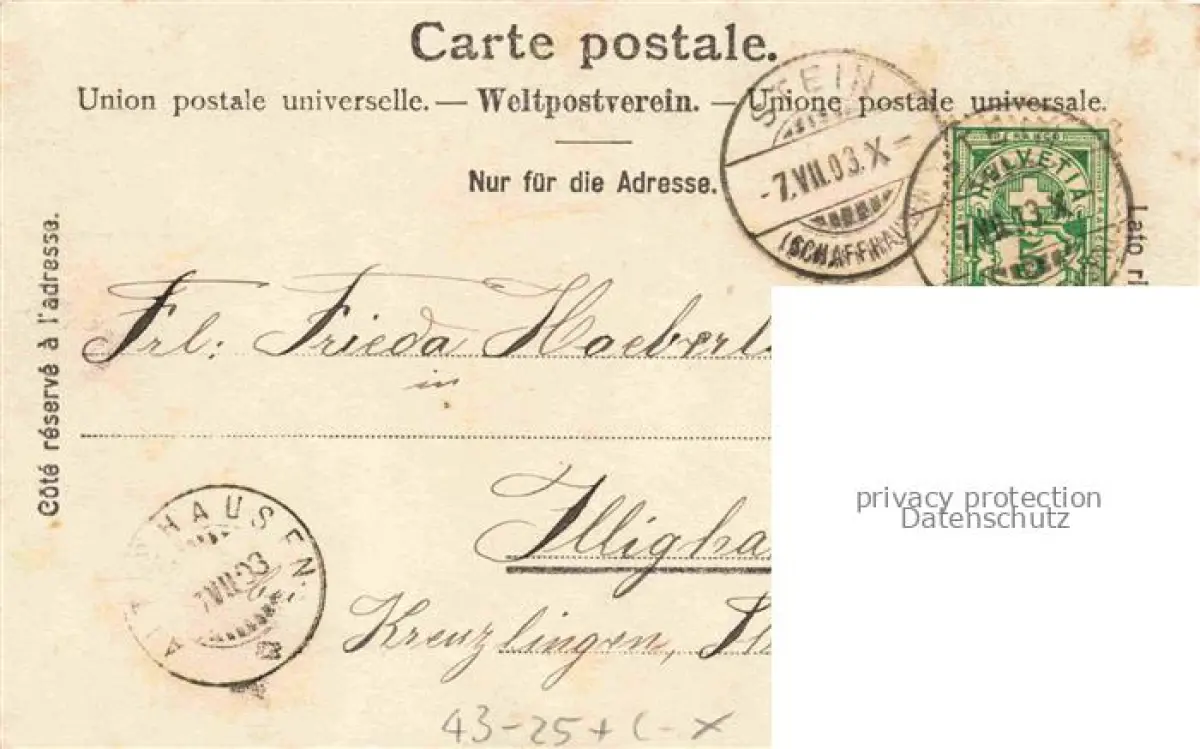 Carte postale.
Union postale universelle. — Weltpostverein. — Unione postale universale.
Nur für die Adresse.
Côté réservé à l'adresse.
Lato ri
STEIN
-7.VII.03.X-
(SCHAFFHAU
HELVETIA
7.VII.03.X
Frl: Frieda Haeberl
in
Illigha
bei
Kreuzlingen,
HAUSEN
7.VII.03
43-25+(-X
privacy protection
Datenschutz